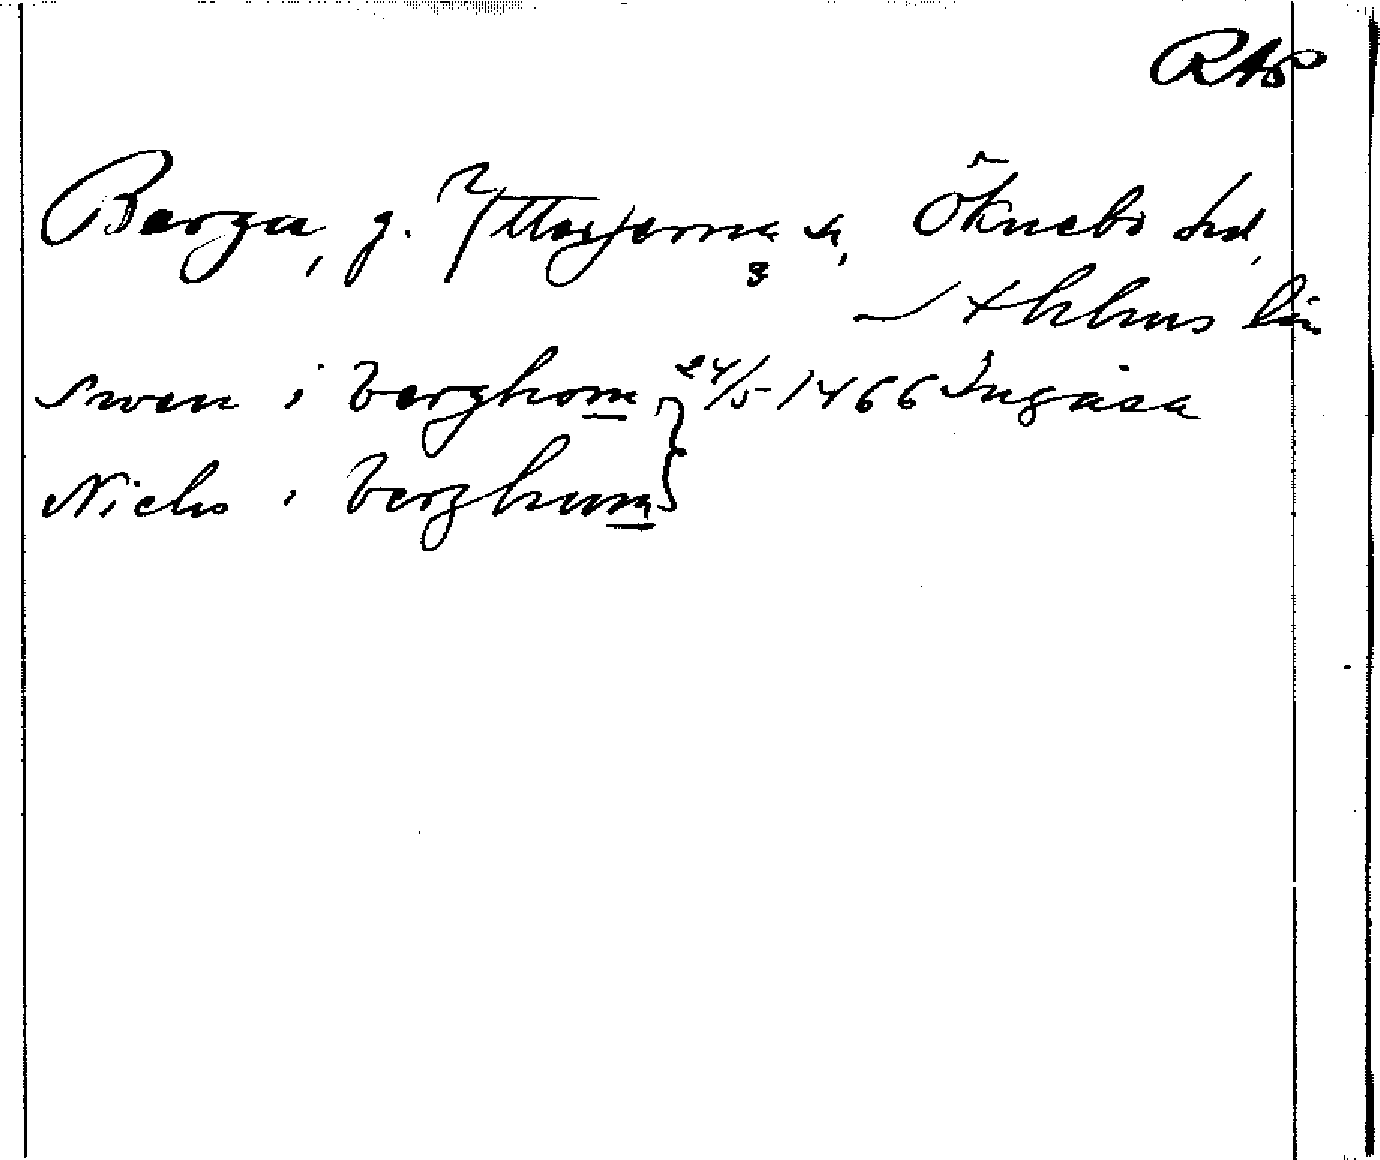 RAp
Berga, g. Ytterjerna sn, Öknebo hd,
3
Sthlms län
Swen i berghom } 24/5 1466 Ingåsa
Niclis i berghum